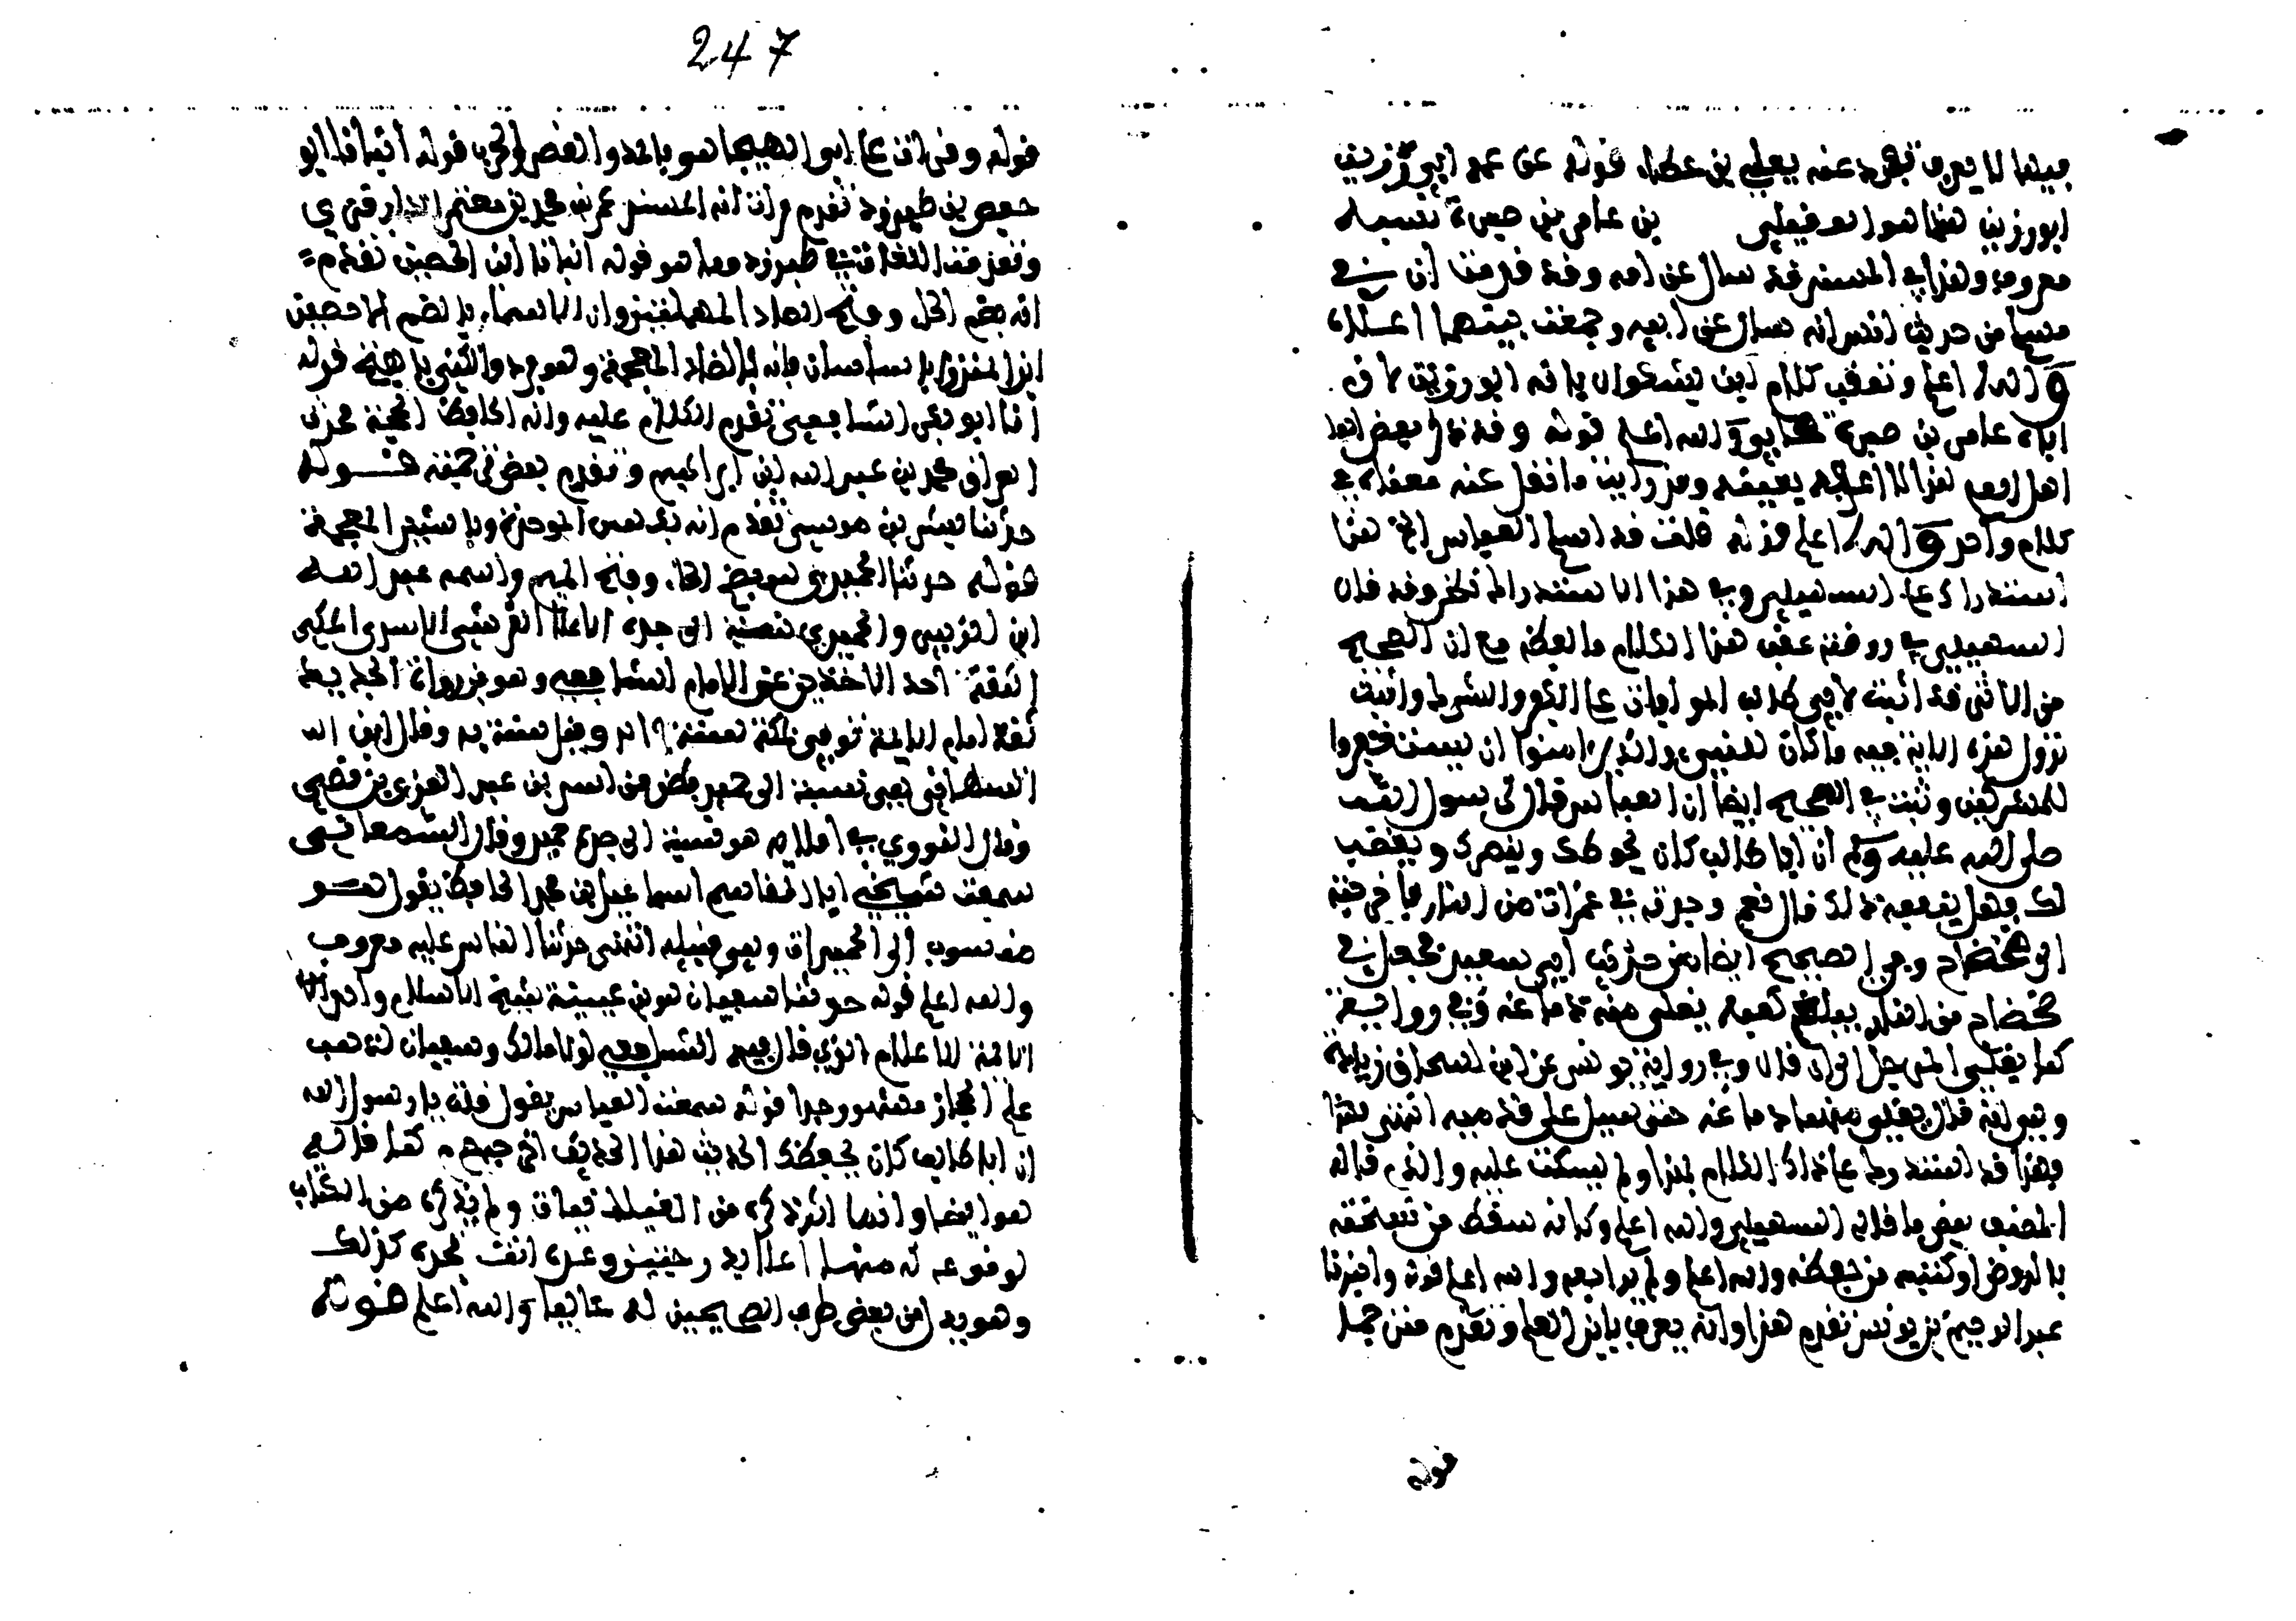 247
فيلها لا يعرف تفرد عنه يعلى بن عطاء قوله عن عمه ابي رزين
ابو رزين هذا هو العقيلي بن عامر بن صبرة نسبه
معروف وهذا في المسند فيه سال عن امه وقد قدمنا ان في
مسلم من حديث انس انه سال عن ابيه وجمعت بينهما
والله اعلم وتعقب كلام ابن بشكوال بانه ابو رزين لان
اباه عامر بن صبرة والله اعلم قوله وقد ذكر بعض
اهل العلم هذا لا اعرفه بعينه وقد رايت ما نقل عنه معناه في
كلام واحد والله اعلم قوله قلت قد اسلم العباس الخ هذا
استدراك على السهيلي وفي هذا الاستدراك نظر وقد قال
السهيلي في روضه عقب هذا الكلام ما لفظه مع ان الصحيح
من الاثر قد اثبت لابي طالب الموافاة على الكفر والشرك واثبت
نزول هذه الاية فيه ما كان للنبي والذين امنوا ان يستغفروا
للمشركين وثبت في الصحيح ايضا ان العباس قال لرسول الله
صلى الله عليه وسلم ان ابا طالب كان يحوطك وينصرك ويغضب
لك فهل ينفعه ذلك قال نعم وجدته في غمرات من النار فاخرجته
الى ضحضاح وفي الصحيح ايضا من حديث ابي سعيد فيجعل في
ضحضاح من النار يبلغ كعبيه يغلي منه دماغه وفي رواية
كما يغلي المرجل الى ان قال وفي رواية يونس عن ابن اسحاق زيادة
وهو انه قال يغلي منها دماغه حتى يسيل على قدميه انتهى لفظه
فهذا قد استدرك على ذلك الكلام بهذا ولم يسكت عليه والذي قاله
المصنف بعض ما قاله السهيلي والله اعلم وكانه سقط من نسخته
بالروض او كتبه من حفظه والله اعلم ولم يراجعه والله اعلم قوله واخبرنا
عبد الرحيم بن يوسف تقدم هذا وانه يعرف بابن العلم وتقدم متى
قوله
قوله وقراته على ابي الهيجا هو بالمد والقصر قوله انبانا ابو
حفص بن طبرزد تقدم وان انه المسند عمر بن محمد بن معمر الدارقزي
وتقدمت اللغات في طبرزد وما هو قوله انبانا ابن الحصين تقدم
انه بضم الحاء وفتح الصاد المهملتين وان الاسماء بالضم الا حضين
ابن المنذر ابا ساسان فانه بالضاد المعجمة وهو فرد والكنى بالفتح قوله
انا ابو بكر الشافعي تقدم الكلام عليه وانه الحافظ الحجة محدث
العراق محمد بن عبد الله بن ابراهيم وتقدم بعض ترجمته قوله
حدثنا بشر بن موسى تقدم انه بكسر الموحدة وبالشين المعجمة
قوله حدثنا الحميدي هو بضم الحاء وفتح الميم واسمه عبد الله
ابن الزبير والحميدي نسبة الى جده الاعلى القرشي الاسدي المكي
الفقيه احد الاخذين عن الامام الشافعي وهو من رواة الجديد
ثقة امام الايمة توفي بمكة سنة وقيل سنة وقال ابن
السمعاني يعني نسبة الى حميد بطن من اسد بن عبد العزى بن قصي
وقال النووي في املائه هو نسبة الى جده حميد وقال السمعاني
سمعت شيخي ابا القاسم اسماعيل بن محمد الحافظ يقول هو
منسوب الى الحميدات وهي قبيلة انتهى حدثنا الناس عليه معروف
والله اعلم قوله حدثنا سفيان هو بن عيينة شيخ الاسلام واحد
الايمة الاعلام الذي قال فيه الشافعي لولا مالك وسفيان لذهب
علم الحجاز مشهور جدا قوله سمعت العباس يقول قلت يا رسول الله
ان ابا طالب كان يحفظك الحديث هذا الحديث اخرجه
هو ايضا وانما اثرته من الغيلانيات ولم يذكره من الكتاب
لوقوعه له منها اعلا بدرجتين وعددته انت تجده كذلك
وهو بدل من بعض طرق الصحيحين له عاليا والله اعلم قوله